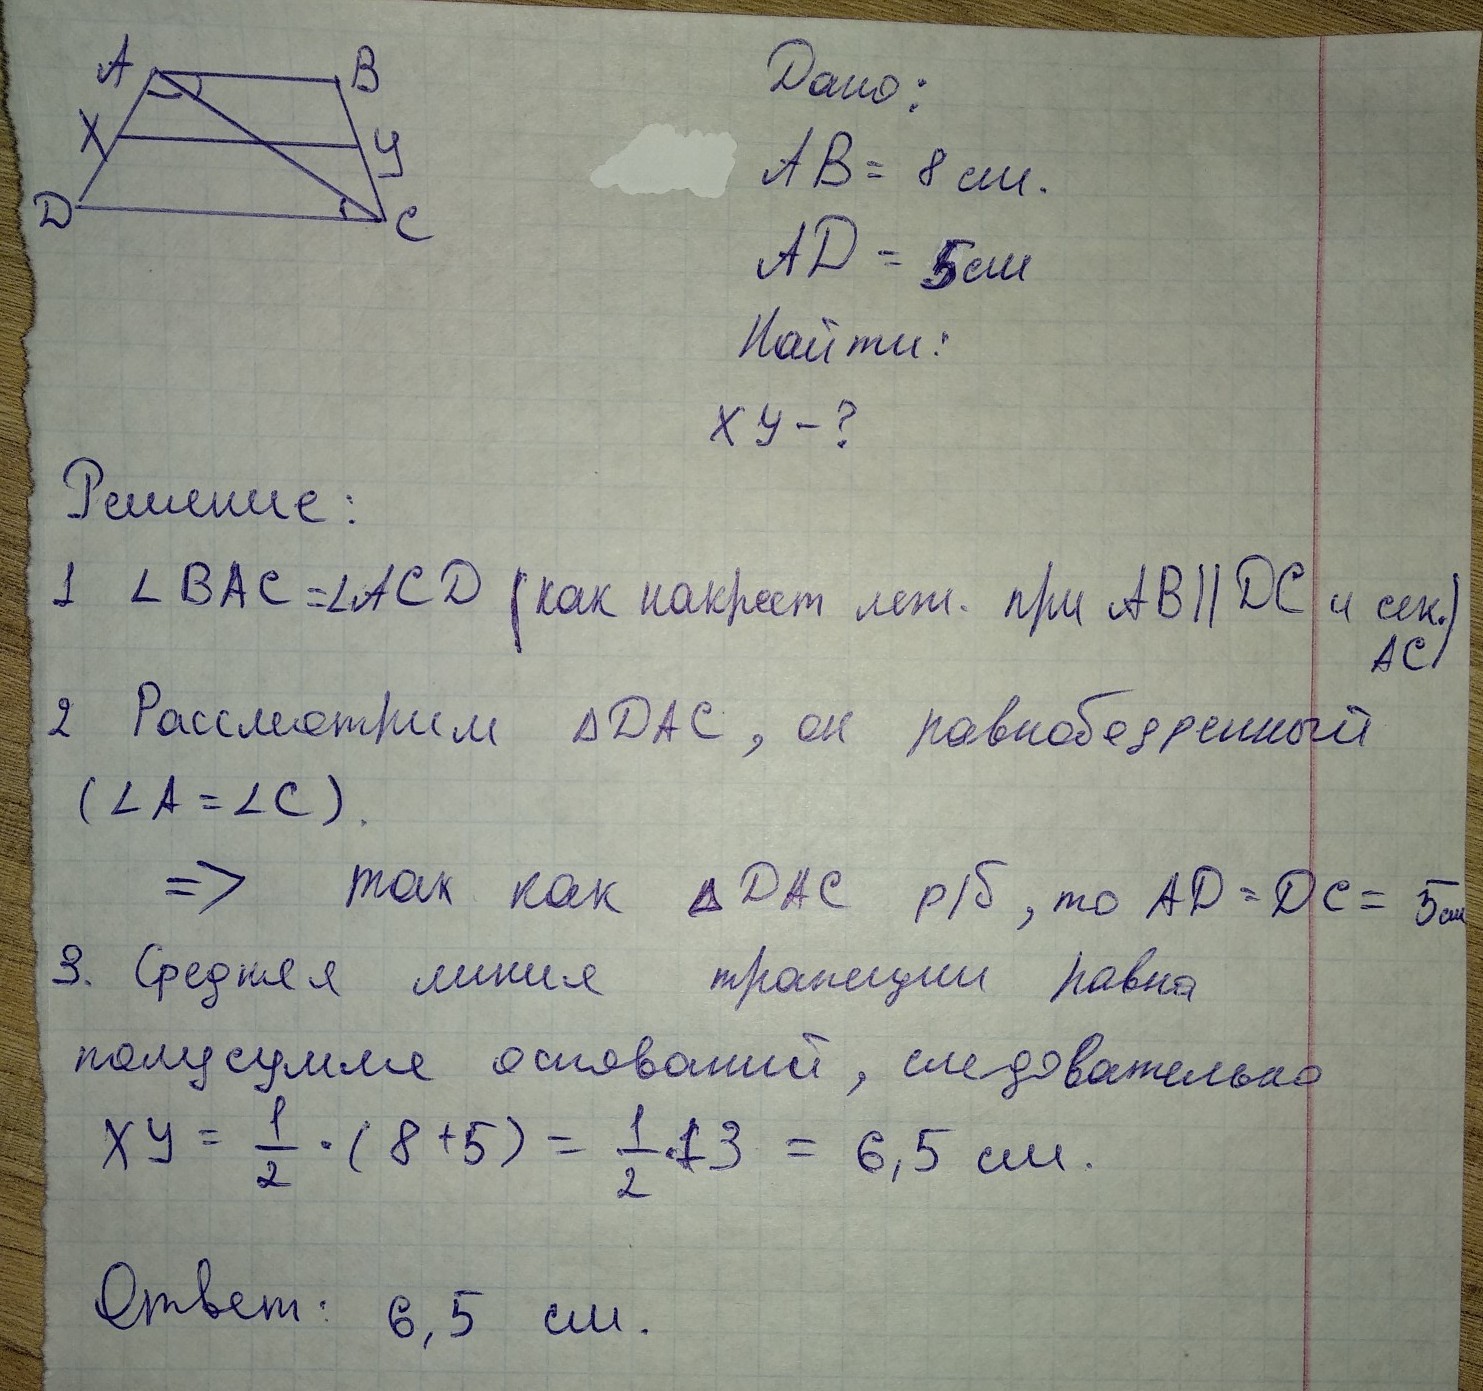 A B
X У
D C
Дано:
AB = 8 см.
AD = 5 см
Найти:
XУ - ?
Решение:
1 ∠BAC = ∠ACD (как накрест леж. при AB || DC и сек.)
AC
2 Рассмотрим △DAC, он равнобедренный
(∠A = ∠C).
=> так как △DAC р/б, то AD = DC = 5см
3. Средняя линия трапеции равна
полусумме оснований, следовательно
XУ = 1/2 · (8+5) = 1/2 · 13 = 6,5 см.
Ответ: 6,5 см.